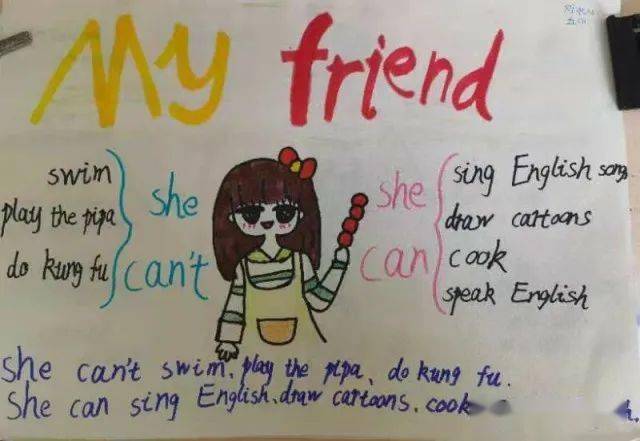 My friend
swim
play the pipa
do kung fu
she
can't
she
can
sing English song
draw cartoons
cook
speak English
she can't swim、play the pipa、do kung fu.
She can sing English、draw cartoons、cook